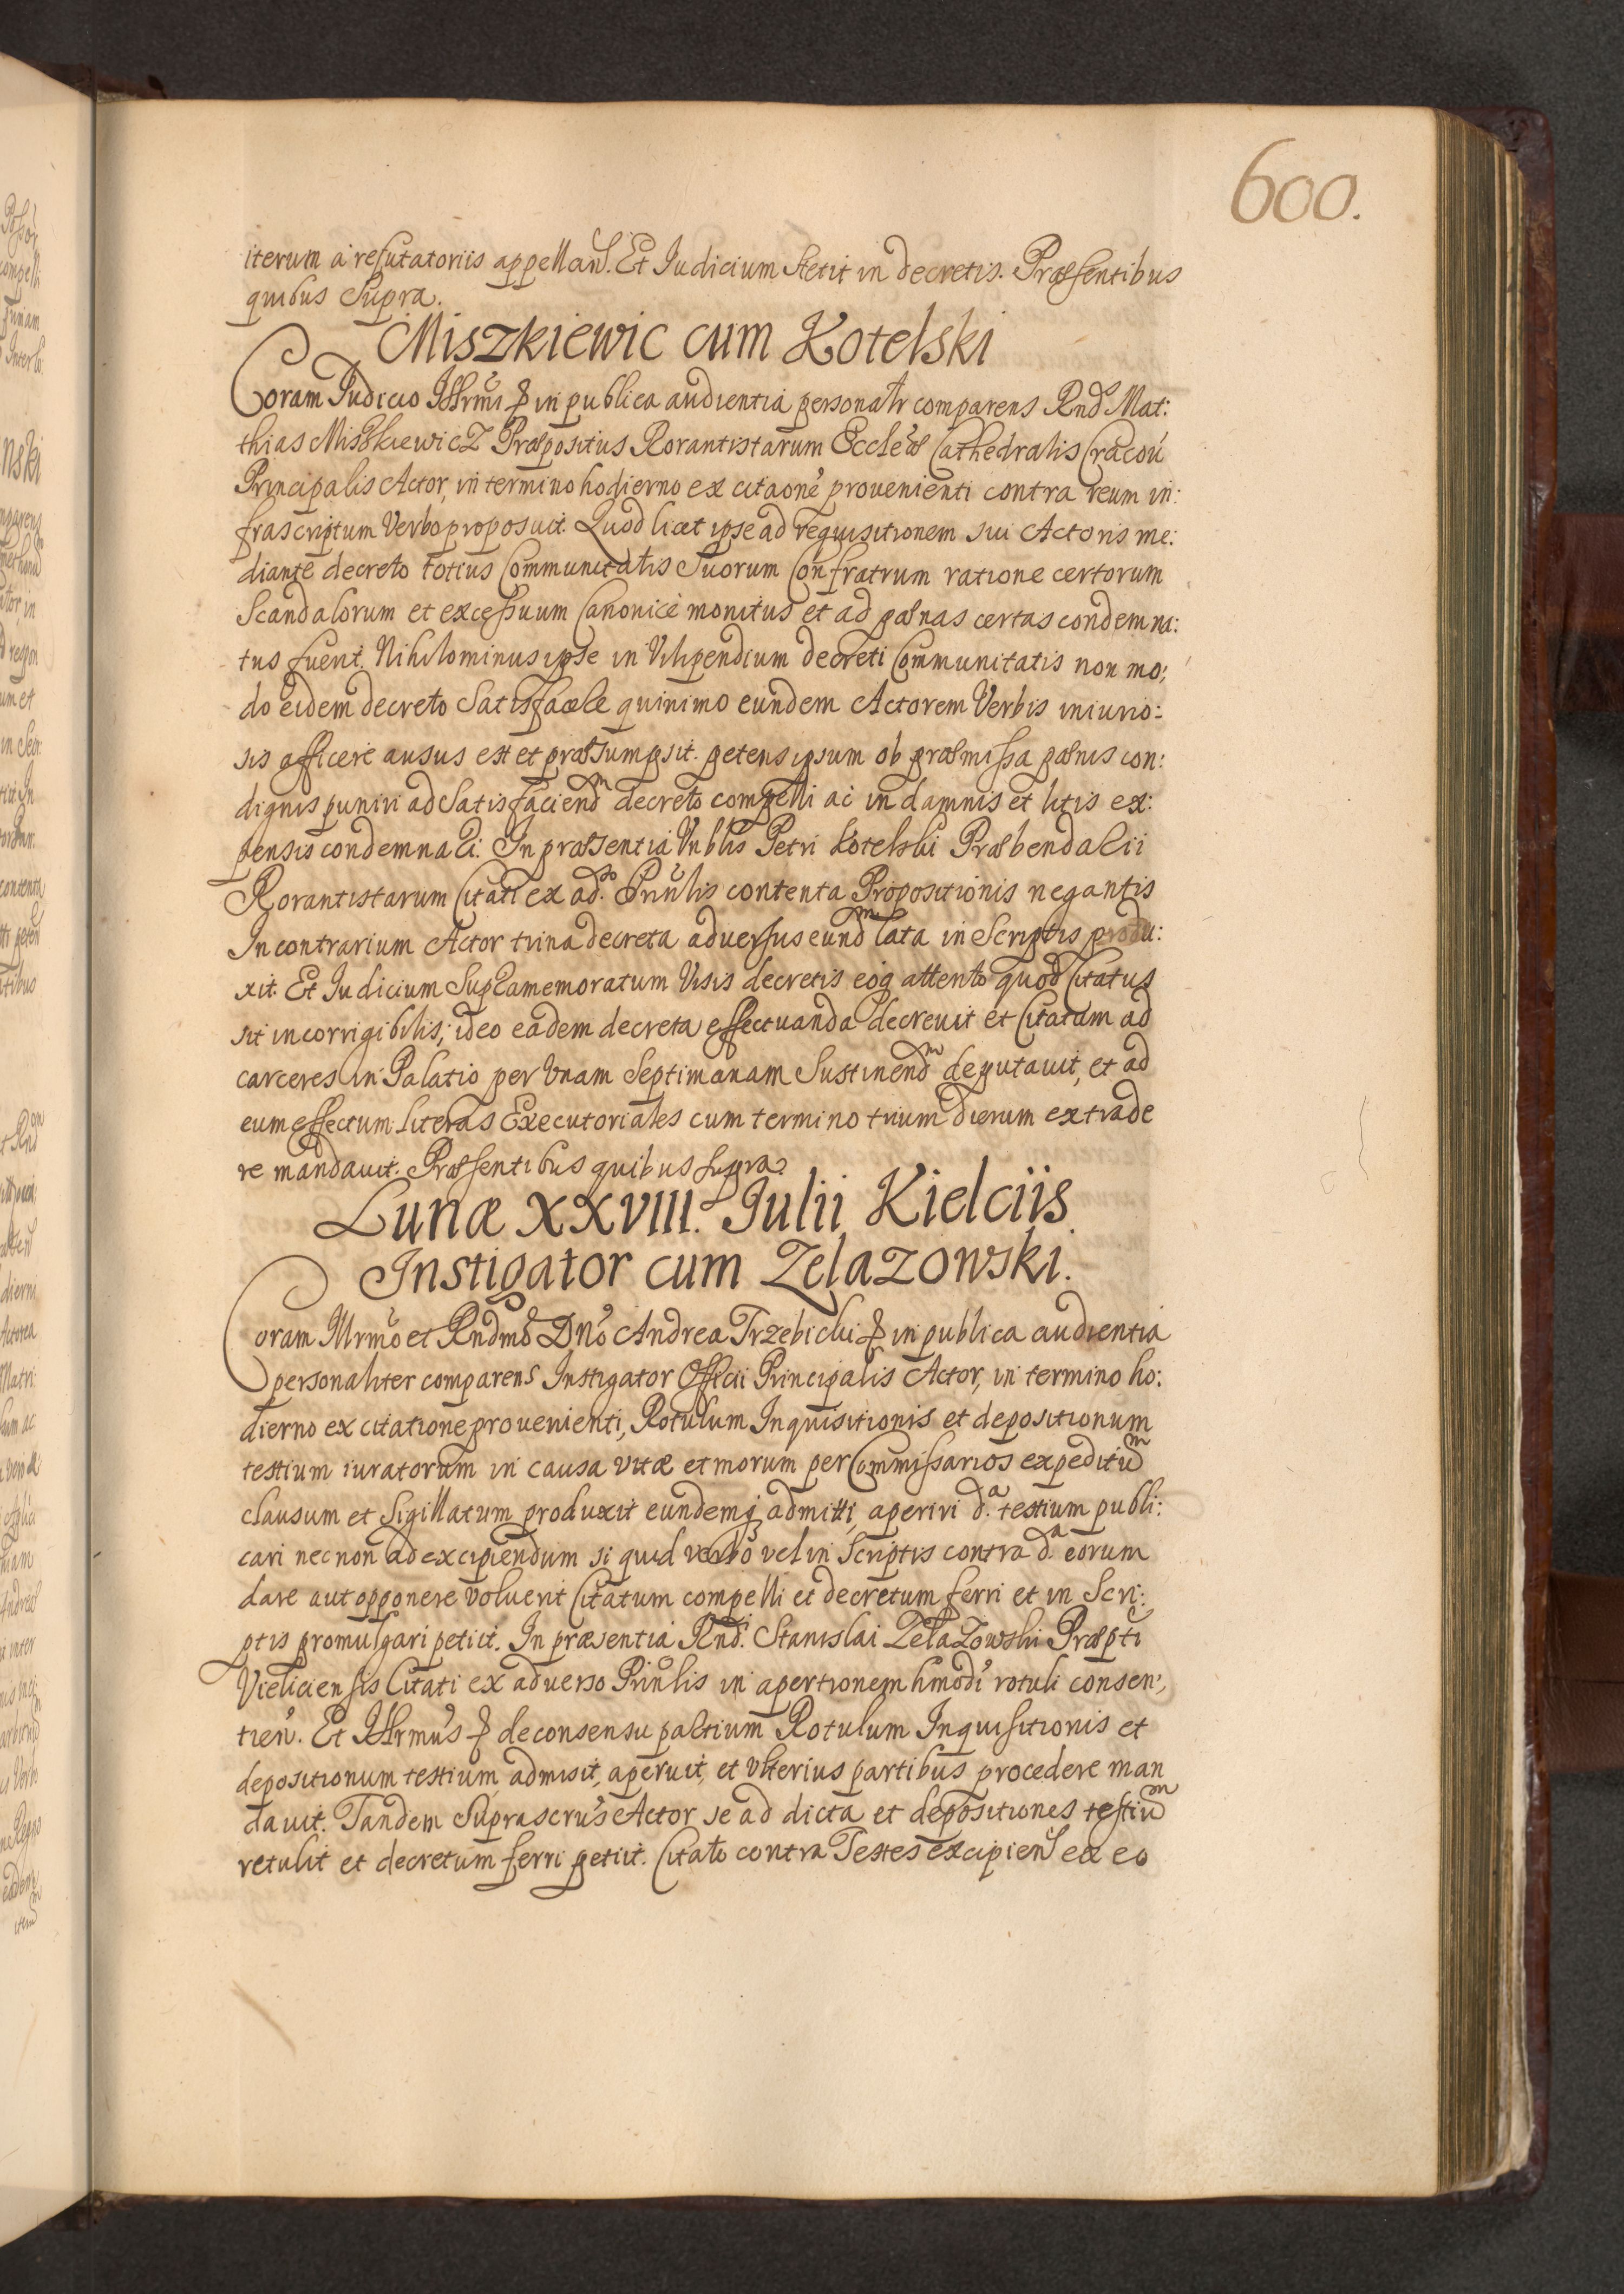 600.
iterum a refutatoriis appellan̄. Et Iudicium stetit in decretis. Præsentibus
quibus supra.
Miszkiewic cum Kotelski
Coram Iudicio Illr̄mi & in publica audientia personalr comparens Rnd̄s Mat:
thias Miszkiewicz Præpositus Rorantistarum Eccleæ Cathedralis Cracou̅
Principalis Actor, in termino hodierno ex citaone prouenienti contra reum in:
frascriptum Verbo proposuit. Quod licet ipse ad requisitionem sui Actoris me:
diante decreto totius Communitatis Suorum Confratrum ratione certorum
Scandalorum et excessuum Canonice monitus et ad pænas certas condemna:
tus fuerit. Nihilominus ipse in Vilipendium decreti Communitatis non mo:
do eidem decreto Satisfacere quinimo eundem Actorem Verbis iniurio:
sis afficere ausus est et præsumpsit. petens ipsum ob præmissa pænis con:
dignis puniri ad Satisfaciendᵐ decreto compelli ac in damnis et litis ex:
pensis condemnari. In præsentia Vnblis Petri Kotelski Præbendarii
Rorantistarum Citati ex ad.ˢᵒ Prin̄lis contenta Propositionis negantis
In contrarium Actor trina decreta aduersus eundᵐ lata in Scriptis produ:
xit. Et Iudicium Supramemoratum Visis decretis eoq attento quod Citatus
sit incorrigibilis, ideo eadem decreta effectuanda decreuit et Citatum ad
carceres in Palatio per Vnam Septimanam Sustinendᵐ deputauit, et ad
eum effectum literas Executoriales cum termino trium dierum extrade
re mandauit. Præsentibus quibus supra.
Lunæ XXVIII. Iulii Kielciis
Instigator cum Zelazowski.
Coram Illr̄mo et Rndmo Dn̄o Andrea Trzebicki & in publica audientia
personaliter comparens Instigator Officii Principalis Actor, in termino ho:
dierno ex citatione prouenienti, Rotulum Inquisitionis et depositionum
testium iuratorum in causa vitæ et morum per Commissarios expeditūᵐ
clausum et sigillatum produxit eundemq admitti, aperiri d.ᵃ testium publi:
cari necnon ad excipiendum si quid verbo vel in Scriptis contra d.ᵃ eorum
dare aut opponere voluerit Citatum compelli et decretum ferri et in Scri:
ptis promulgari petiit. In præsentia Rnd.ⁱ Stanislai Zelazowski Præpti
Vieliciensis Citati ex aduerso Prin̄lis in apertionem hmōdi rotuli consen:
tien̄. Et Illrmus & de consensu partium Rotulum Inquisitionis et
depositionum testium admisit, aperuit, et Vlterius partibus procedere man
dauit. Tandem Suprascrus Actor se ad dicta et depositiones testiūᵐ
retulit et decretum ferri petiit. Citato contra Testes excipien̄ ex eo